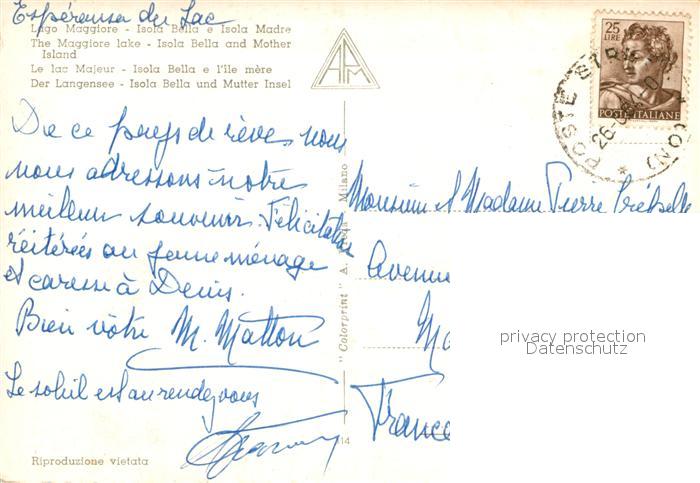 du Lac
Lago Maggiore - Isola Bella e Isola Madre
The Maggiore lake - Isola Bella and Mother
Island
Le lac Majeur - Isola Bella e l'île mère
Der Langensee - Isola Bella und Mutter Insel
APM
25
LIRE
POSTE ITALIANE
POSTE
26-
(NO)
De ce pays de rêve nous
nous adressons notre
meilleur souvenir. Félicitations
réitérées au jeune ménage
et caresse à Denis.
Bien vôtre M. Matton
Le soleil est au rendez vous
Monsieur & Madame Pierre
Avenue
France
"Colorprint" A. Milano
14
Riproduzione vietata
privacy protection
Datenschutz